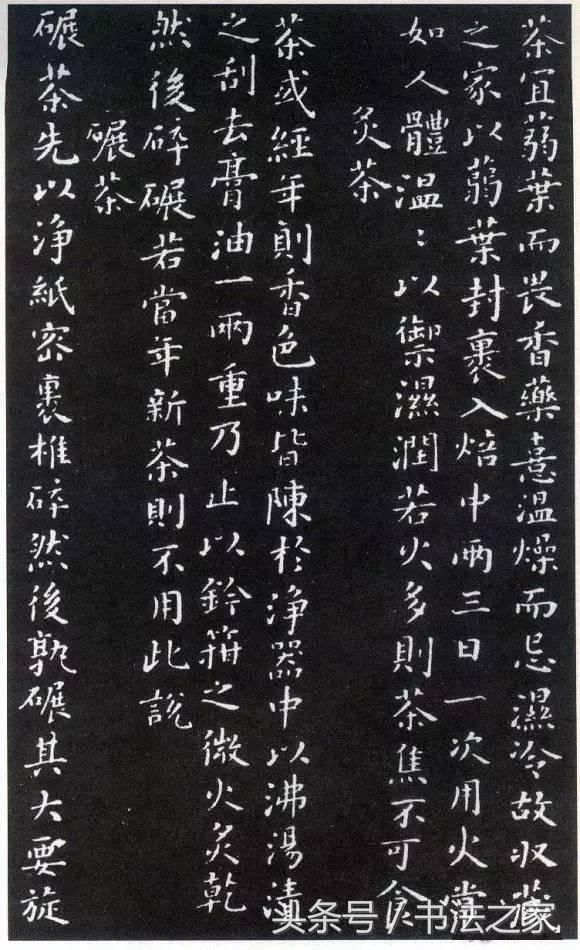 茶宜蒻葉而畏香藥憙温燥而忌濕冷故収藏
之家以蒻葉封裹入焙中兩三日一次用火常
如人體温〻以御濕潤若火多則茶焦不可食
炙茶
茶或經年則香色味皆陳於淨器中以沸湯漬
之刮去膏油一兩重乃止以鈐箝之微火炙乾
然後碎碾若當年新茶則不用此說
碾茶
碾茶先以淨紙密裹椎碎然後孰碾其大要旋
头条号/书法之家